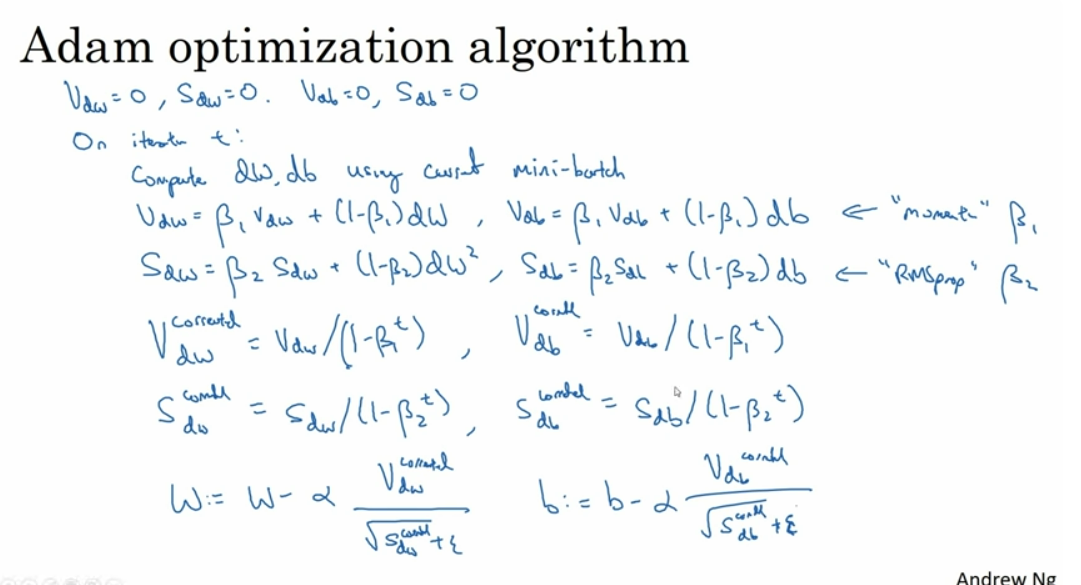 Adam optimization algorithm
V_dw = 0, S_dw = 0. V_db = 0, S_db = 0
On iteration t:
Compute dW, db using current mini-batch
V_dw = β₁ V_dw + (1-β₁) dW , V_db = β₁ V_db + (1-β₁) db ← "moment" β₁
S_dw = β₂ S_dw + (1-β₂) dW² , S_db = β₂ S_db + (1-β₂) db ← "RMSprop" β₂
V_dw^corrected = V_dw / (1-β₁^t) , V_db^corrected = V_db / (1-β₁^t)
S_dw^corrected = S_dw / (1-β₂^t) , S_db^corrected = S_db / (1-β₂^t)
W := W - α V_dw^corrected / (√S_dw^corrected + ε) b := b - α V_db^corrected / (√S_db^corrected + ε)
Andrew Ng